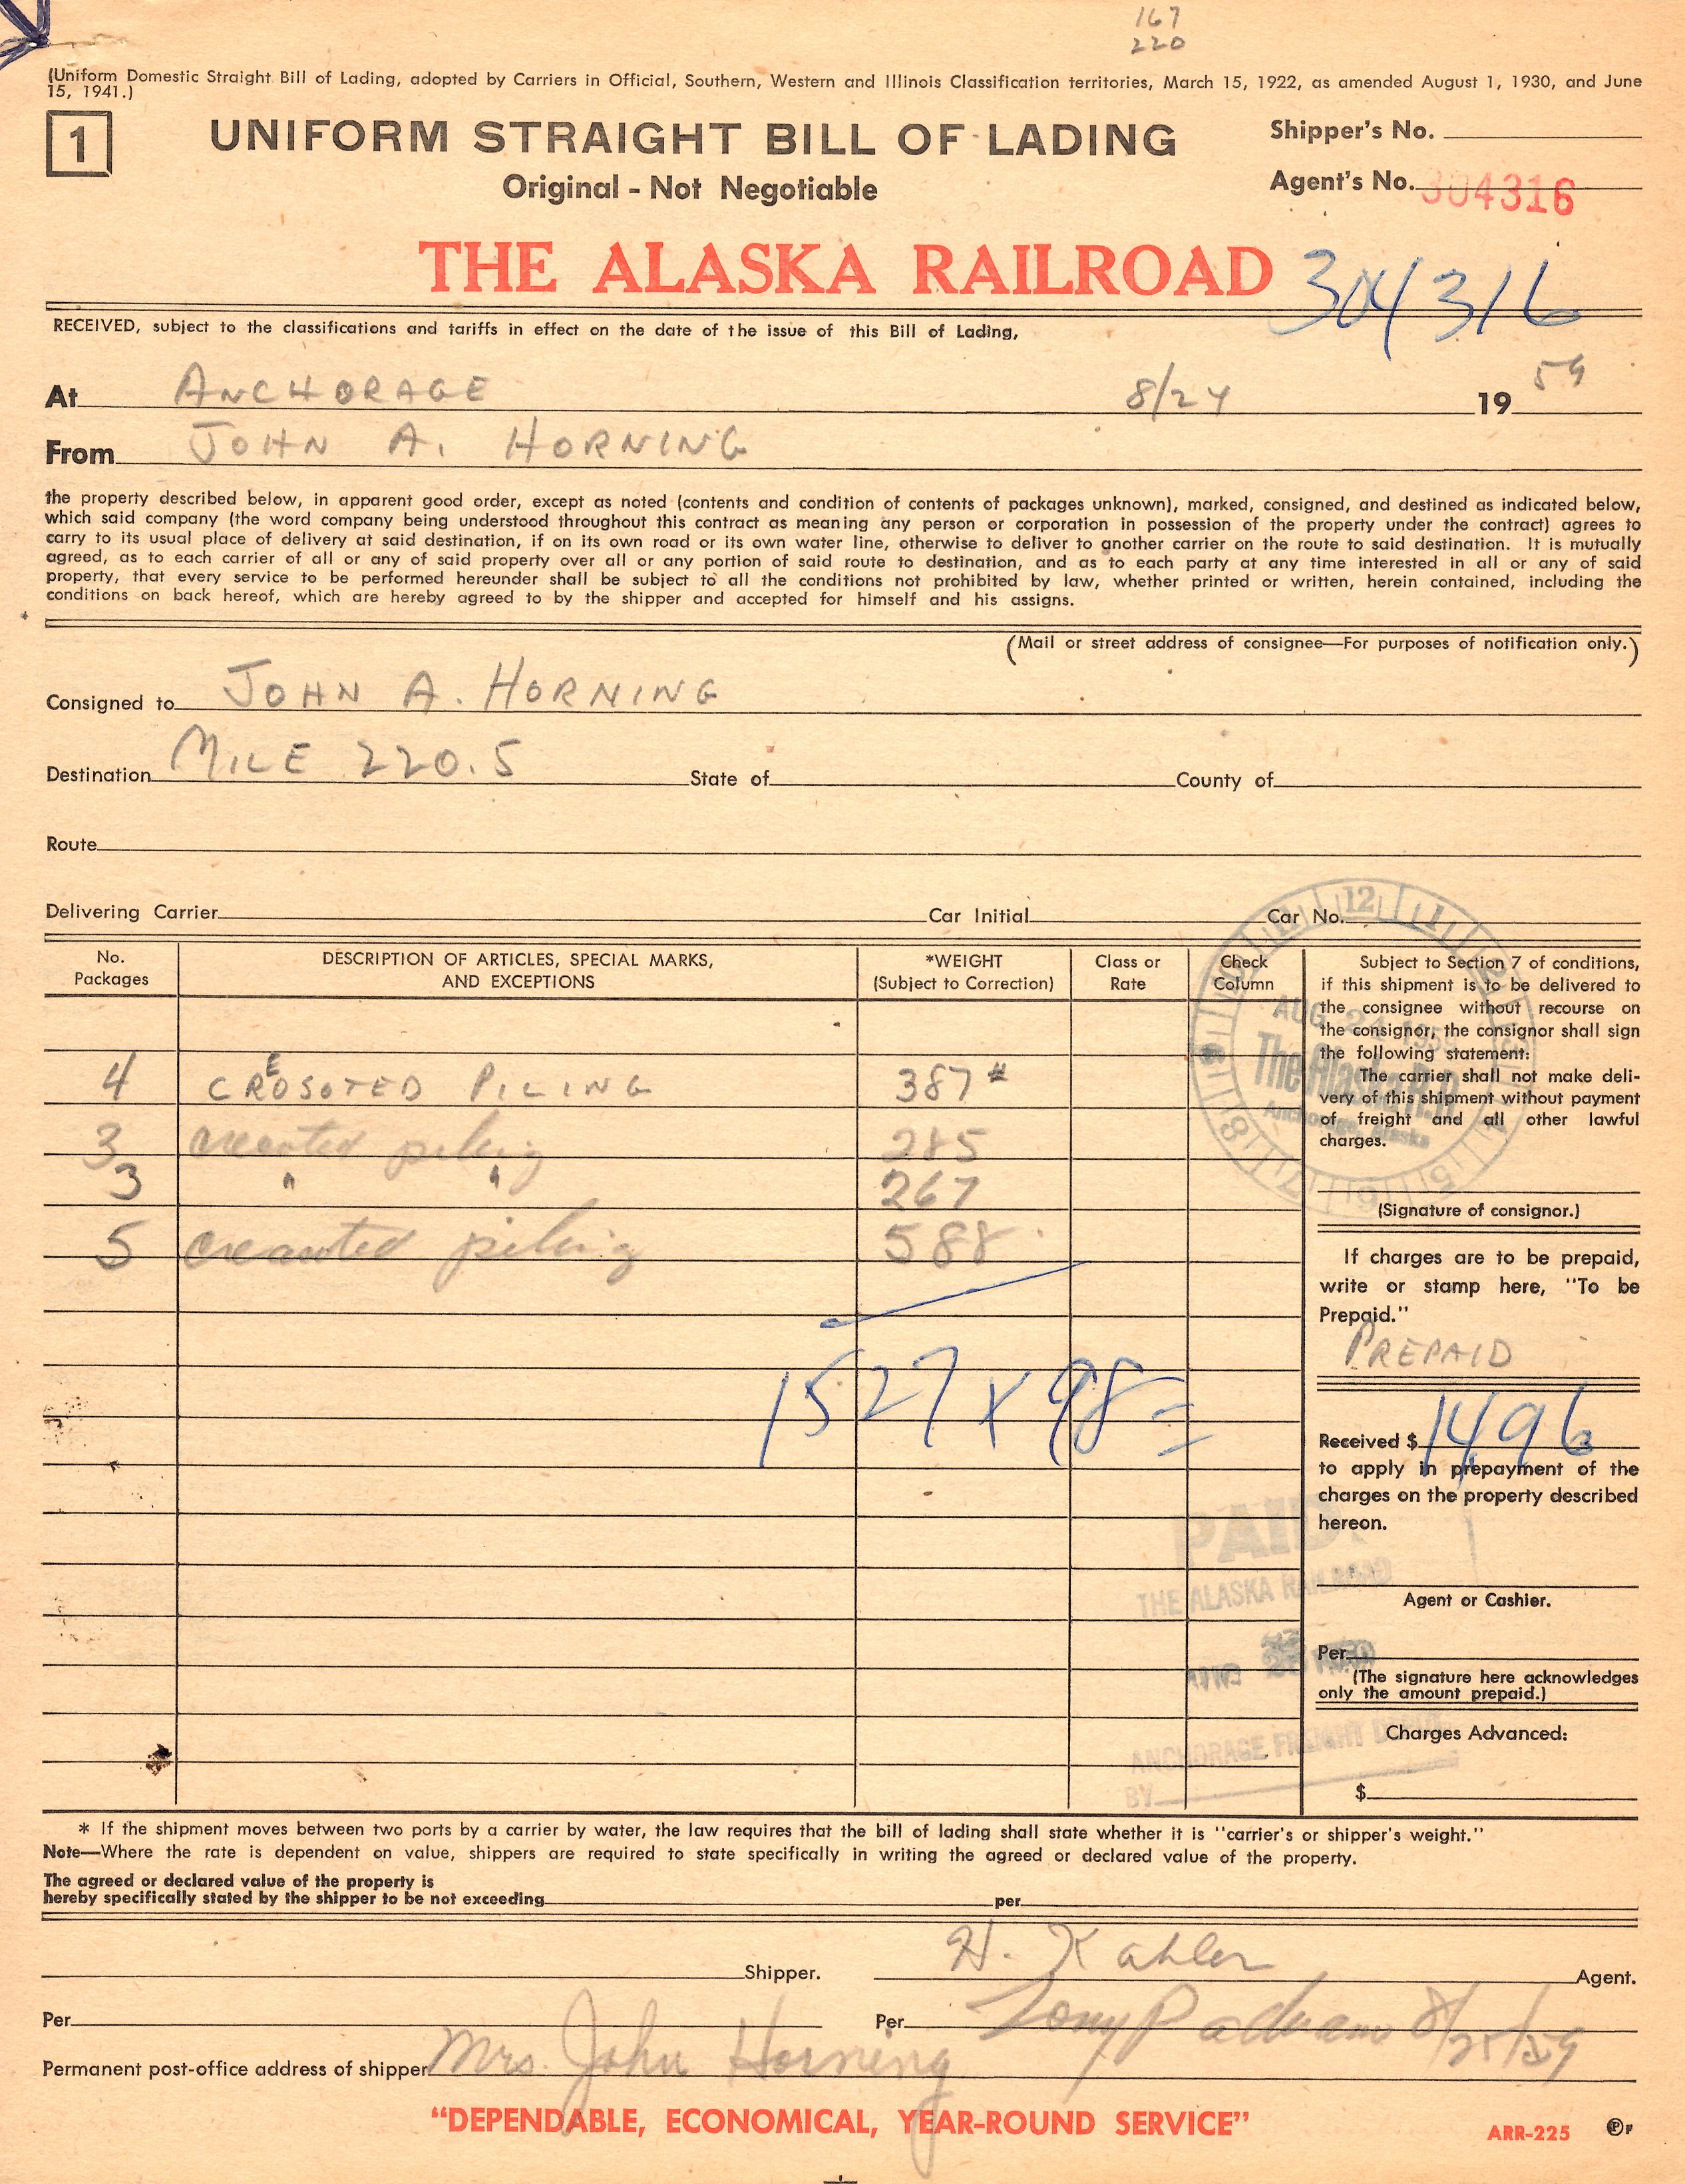 167
220
(Uniform Domestic Straight Bill of Lading, adopted by Carriers in Official, Southern, Western and Illinois Classification territories, March 15, 1922, as amended August 1, 1930, and June
15, 1941.)
1
UNIFORM STRAIGHT BILL OF LADING
Original - Not Negotiable
Shipper's No.
Agent's No. 304316
THE ALASKA RAILROAD
304316
RECEIVED, subject to the classifications and tariffs in effect on the date of the issue of this Bill of Lading,
At ANCHORAGE 8/24 19 59
From JOHN A. HORNING
the property described below, in apparent good order, except as noted (contents and condition of contents of packages unknown), marked, consigned, and destined as indicated below,
which said company (the word company being understood throughout this contract as meaning any person or corporation in possession of the property under the contract) agrees to
carry to its usual place of delivery at said destination, if on its own road or its own water line, otherwise to deliver to another carrier on the route to said destination. It is mutually
agreed, as to each carrier of all or any of said property over all or any portion of said route to destination, and as to each party at any time interested in all or any of said
property, that every service to be performed hereunder shall be subject to all the conditions not prohibited by law, whether printed or written, herein contained, including the
conditions on back hereof, which are hereby agreed to by the shipper and accepted for himself and his assigns.
(Mail or street address of consignee—For purposes of notification only.)
Consigned to JOHN A. HORNING
Destination MILE 220.5 State of County of
Route
Delivering Carrier Car Initial Car No.
No.
Packages
DESCRIPTION OF ARTICLES, SPECIAL MARKS,
AND EXCEPTIONS
*WEIGHT
(Subject to Correction)
Class or
Rate
Check
Column
4 CREOSOTED PILING 387#
3 creaoted piling 285
3 " " 267
5 creaoted piling 588
1527 x 98 =
12 1 2 3 4 5 6 7 8 9 10 11
AUG 24 1959
The Alaska R.R.
Anchorage, Alaska
Subject to Section 7 of conditions,
if this shipment is to be delivered to
the consignee without recourse on
the consignor, the consignor shall sign
the following statement:
The carrier shall not make deli-
very of this shipment without payment
of freight and all other lawful
charges.
(Signature of consignor.)
If charges are to be prepaid,
write or stamp here, "To be
Prepaid."
PREPAID
Received $ 1496
to apply in prepayment of the
charges on the property described
hereon.
PAID
THE ALASKA RAILROAD
Agent or Cashier.
AUG
Per
(The signature here acknowledges
only the amount prepaid.)
ANCHORAGE FREIGHT
BY
Charges Advanced:
$
* If the shipment moves between two ports by a carrier by water, the law requires that the bill of lading shall state whether it is "carrier's or shipper's weight."
Note—Where the rate is dependent on value, shippers are required to state specifically in writing the agreed or declared value of the property.
The agreed or declared value of the property is
hereby specifically stated by the shipper to be not exceeding per
Shipper. H. Kahler Agent.
Per Per Tony Paduano 8/25/59
Permanent post-office address of shipper Mrs. John Horning
"DEPENDABLE, ECONOMICAL, YEAR-ROUND SERVICE"
ARR-225